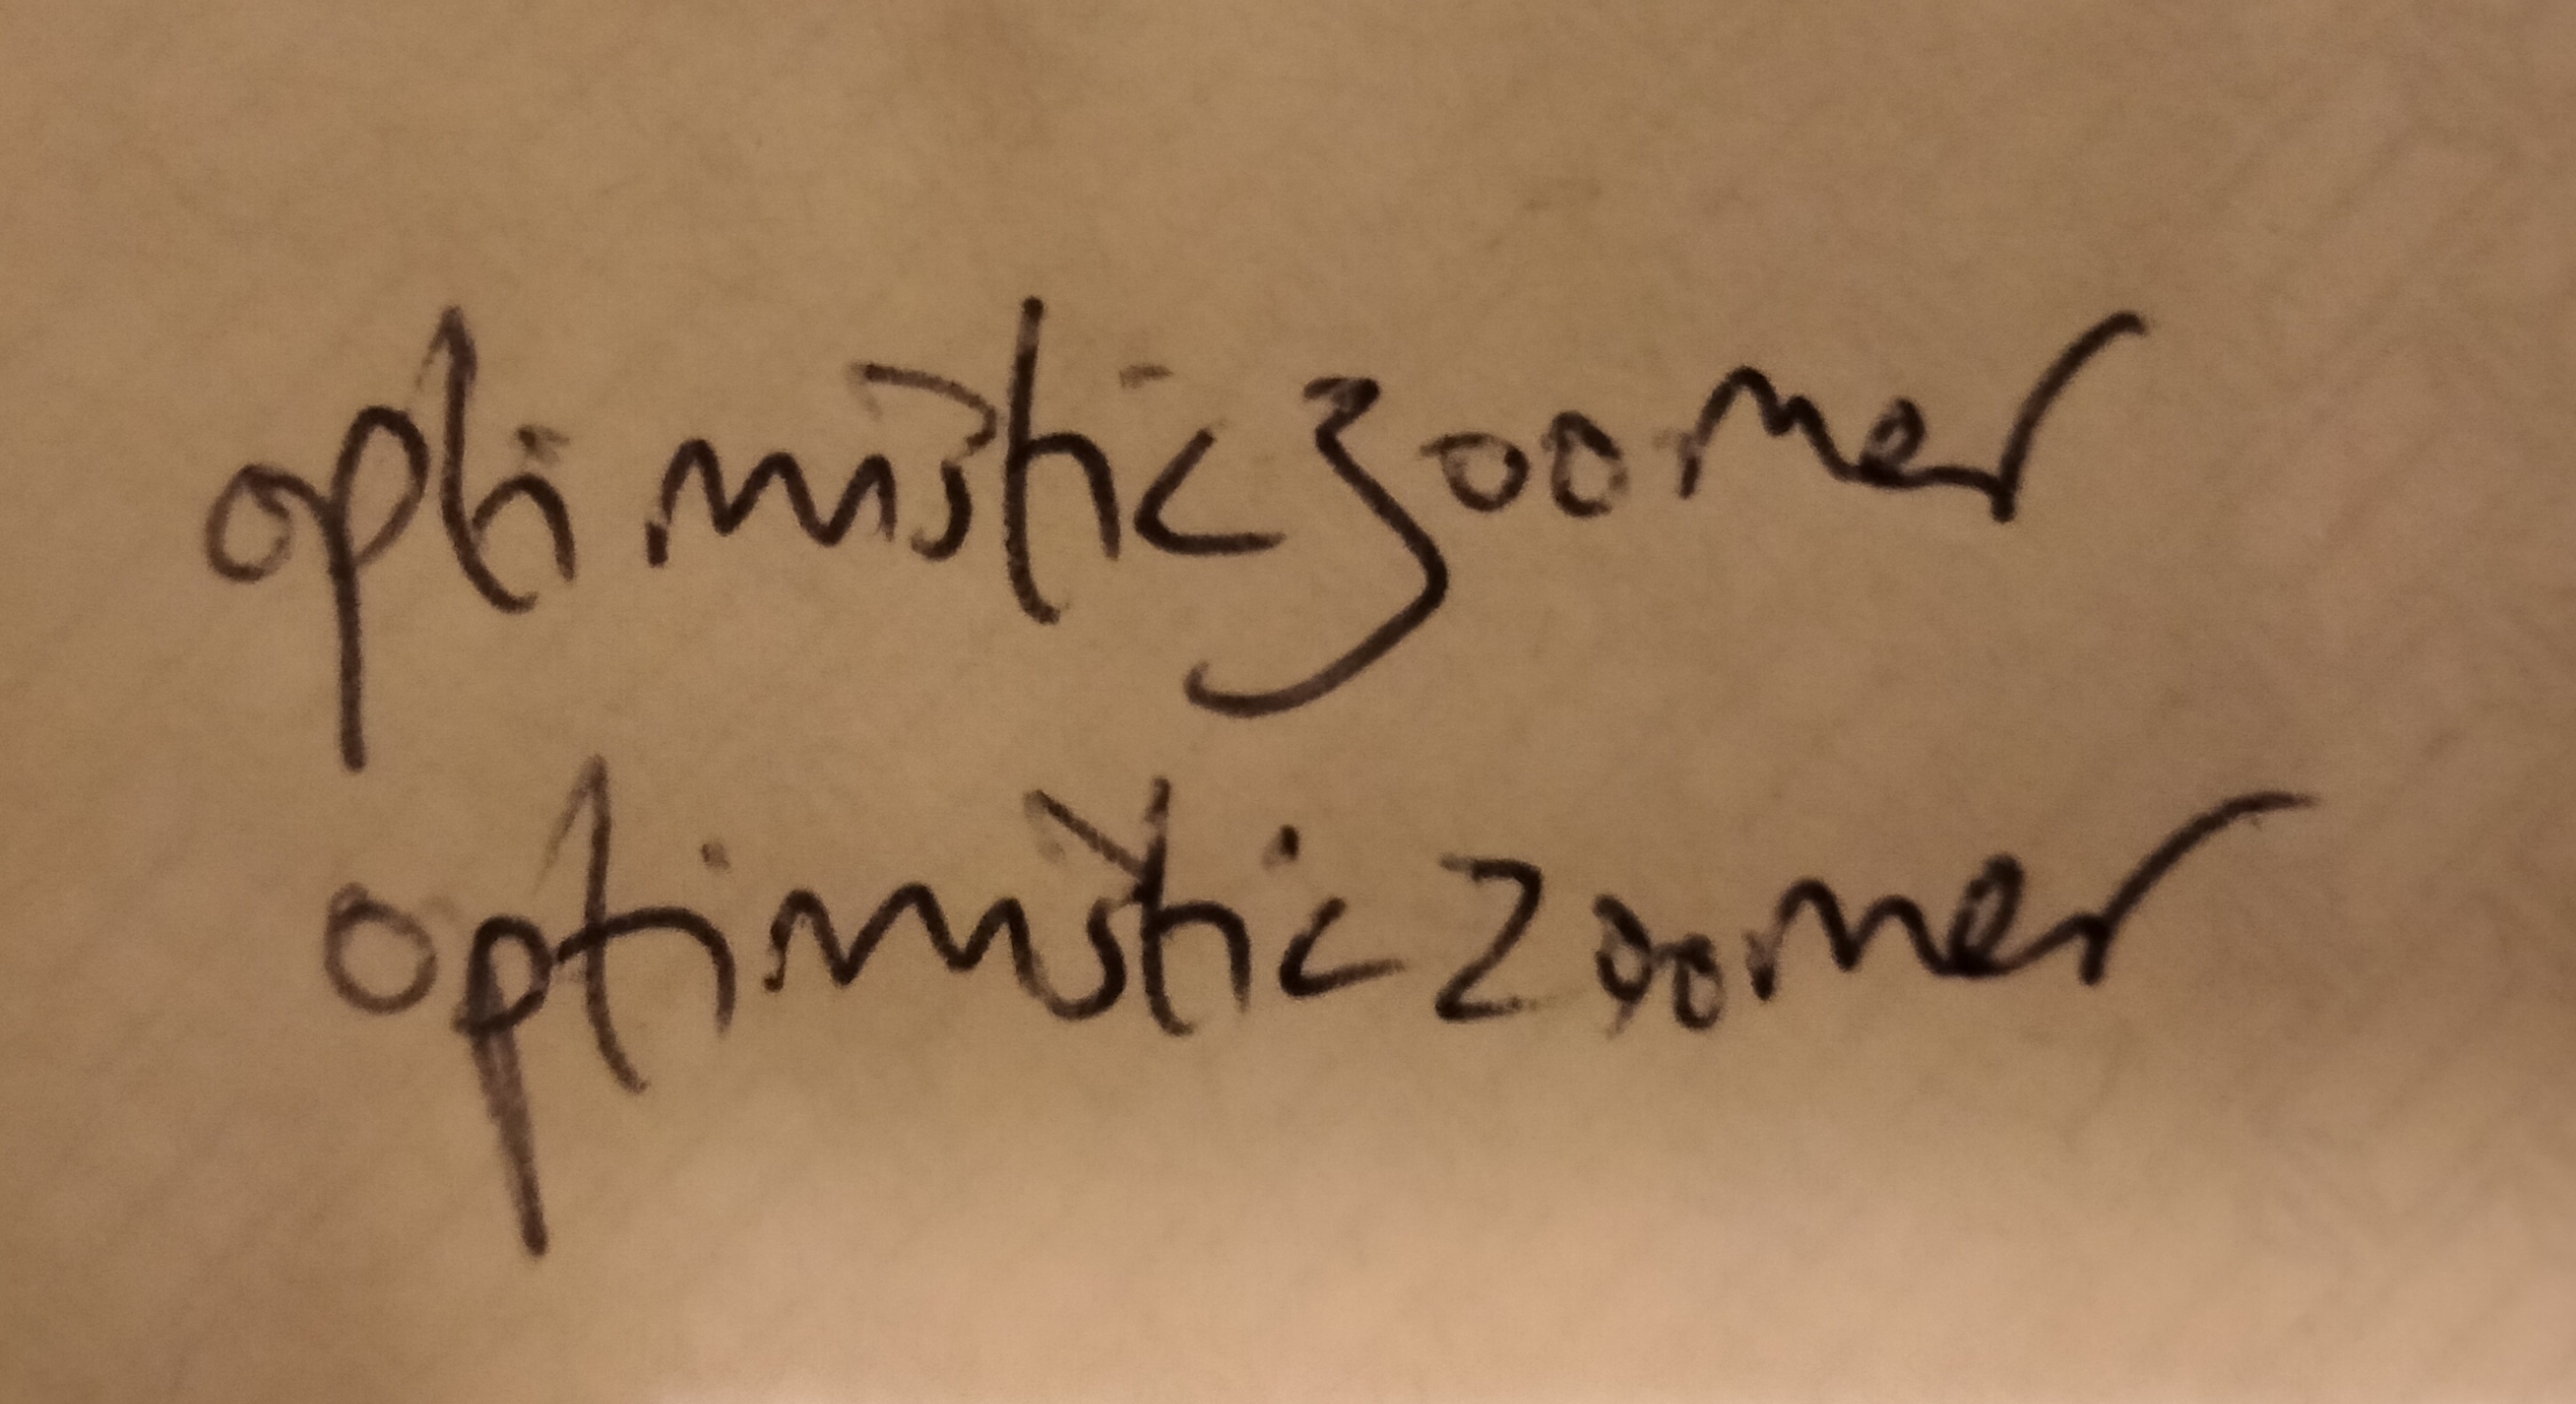 optimisticzoomer
optimisticzoomer